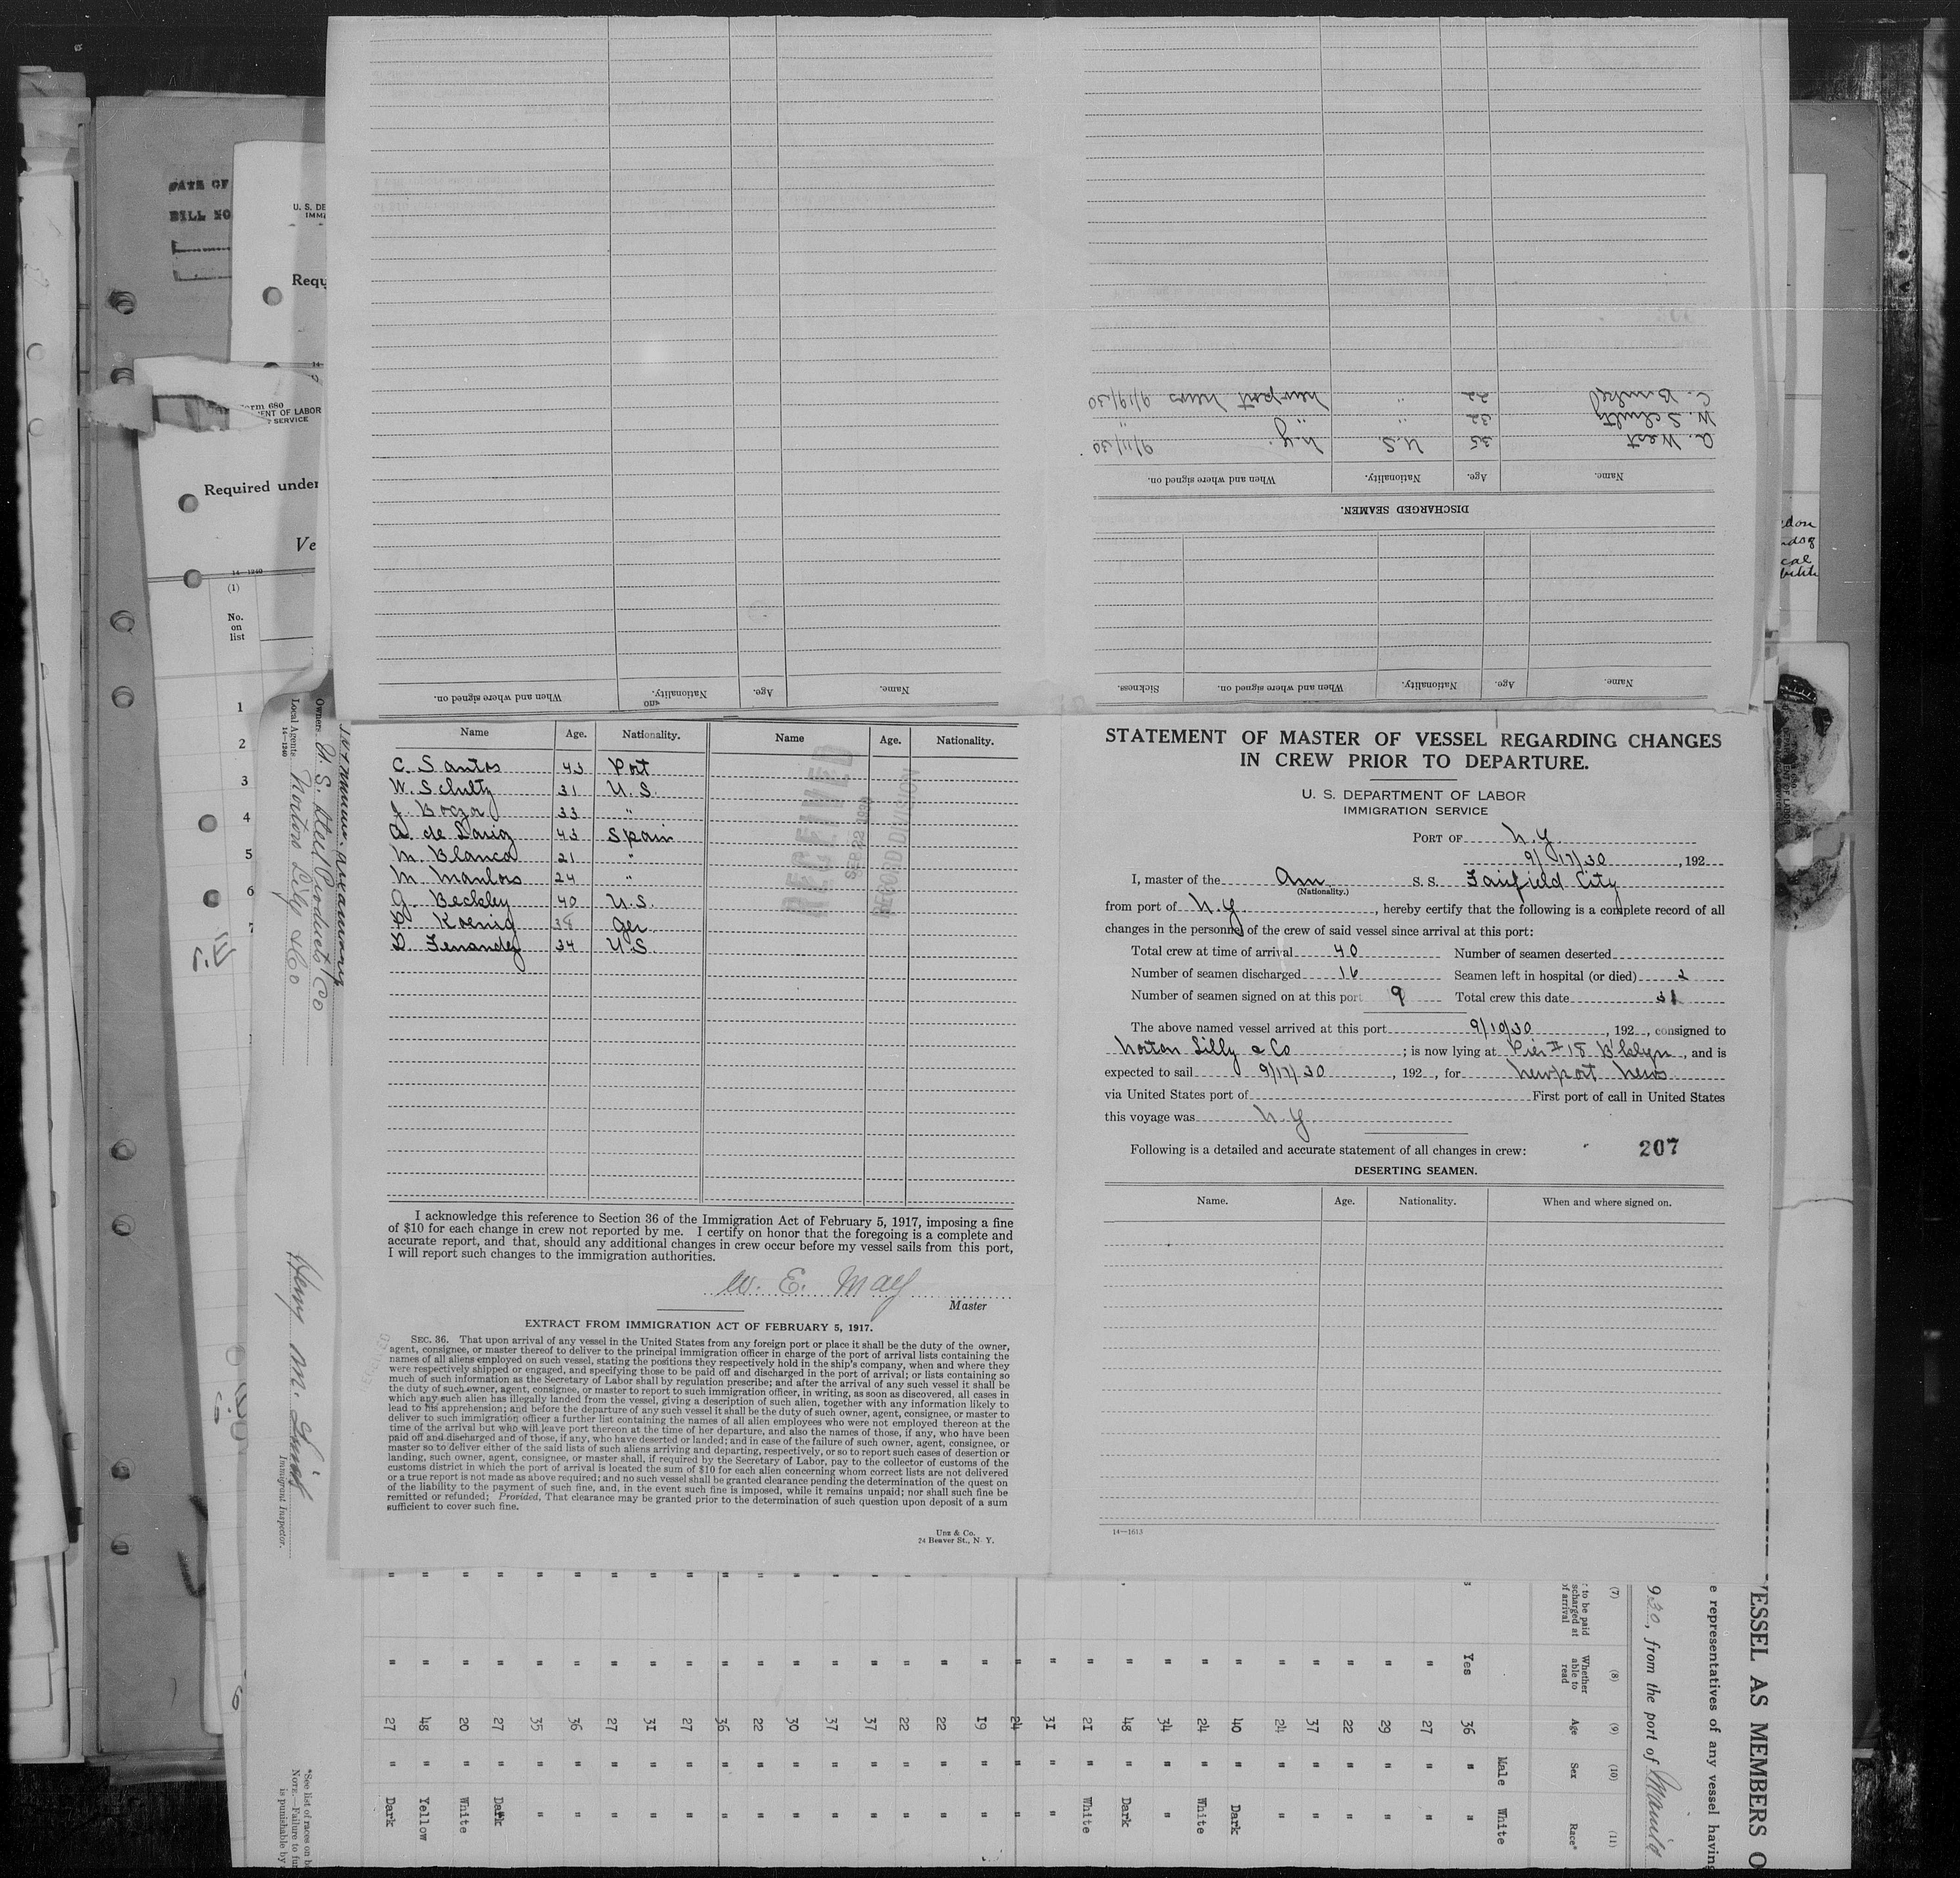 STATEMENT OF MASTER OF VESSEL REGARDING CHANGES
IN CREW PRIOR TO DEPARTURE.
U. S. DEPARTMENT OF LABOR
IMMIGRATION SERVICE
PORT OF N. Y
9/17/30, 192
I, master of the Am S. S. Fairfield City
(Nationality.)
from port of N. Y, hereby certify that the following is a complete record of all
changes in the personnel of the crew of said vessel since arrival at this port:
Total crew at time of arrival 40 Number of seamen deserted
Number of seamen discharged 16 Seamen left in hospital (or died) 2
Number of seamen signed on at this port 9 Total crew this date 31
The above named vessel arrived at this port 9/10/30, 192, consigned to
Norton Lilly & Co; is now lying at Pier # 18 B'klyn, and is
expected to sail 9/17/30, 192, for Newport News
via United States port of First port of call in United States
this voyage was N. Y
Following is a detailed and accurate statement of all changes in crew: 207
DESERTING SEAMEN.
Name. Age. Nationality. When and where signed on.
14—1613
Name Age. Nationality. Name Age. Nationality.
C. Santos 43 Port
W. Schultz 31 U. S.
J. 33 "
a. de 43 Spain
M. Blanca 21 "
M. 24 "
G. Beckley 40 U. S.
Koenig 38 Ger
D. Fernandez 34 U. S
RECEIVED
SEP 22 1930
RECORD DIVISION
I acknowledge this reference to Section 36 of the Immigration Act of February 5, 1917, imposing a fine
of $10 for each change in crew not reported by me. I certify on honor that the foregoing is a complete and
accurate report, and that, should any additional changes in crew occur before my vessel sails from this port,
I will report such changes to the immigration authorities.
W. E. May
Master
EXTRACT FROM IMMIGRATION ACT OF FEBRUARY 5, 1917.
SEC. 36. That upon arrival of any vessel in the United States from any foreign port or place it shall be the duty of the owner,
agent, consignee, or master thereof to deliver to the principal immigration officer in charge of the port of arrival lists containing the
names of all aliens employed on such vessel, stating the positions they respectively hold in the ship's company, when and where they
were respectively shipped or engaged, and specifying those to be paid off and discharged in the port of arrival; or lists containing so
much of such information as the Secretary of Labor shall by regulation prescribe; and after the arrival of any such vessel it shall be
the duty of such owner, agent, consignee, or master to report to such immigration officer, in writing, as soon as discovered, all cases in
which any such alien has illegally landed from the vessel, giving a description of such alien, together with any information likely to
lead to his apprehension; and before the departure of any such vessel it shall be the duty of such owner, agent, consignee, or master to
deliver to such immigration officer a further list containing the names of all alien employees who were not employed thereon at the
time of the arrival but who will leave port thereon at the time of her departure, and also the names of those, if any, who have been
paid off and discharged and of those, if any, who have deserted or landed; and in case of the failure of such owner, agent, consignee, or
master so to deliver either of the said lists of such aliens arriving and departing, respectively, or so to report such cases of desertion or
landing, such owner, agent, consignee, or master shall, if required by the Secretary of Labor, pay to the collector of customs of the
customs district in which the port of arrival is located the sum of $10 for each alien concerning whom correct lists are not delivered
or a true report is not made as above required; and no such vessel shall be granted clearance pending the determination of the quest on
of the liability to the payment of such fine, and, in the event such fine is imposed, while it remains unpaid; nor shall such fine be
remitted or refunded; Provided, That clearance may be granted prior to the determination of such question upon deposit of a sum
sufficient to cover such fine.
Unz & Co.
24 Beaver St., N Y.
Name. Age. Nationality. When and where signed on. Sickness.
DISCHARGED SEAMEN.
Name. Age. Nationality. When and where signed on.
a. West 35 U. S. N. Y. 9/11/30
W. Schultz 32 " " "
C. 22 " Newport News 9/19/30
Name. Age. Nationality. When and where signed on.
DATE OF
BILL NO
U. S. DE
IMMI
Requ
Form 680
ENT OF LABOR
SERVICE
Required under
Ve
14—1240
(1)
No.
on
list
1
2
3
4
5
6
7
Owners U. S. Steel Products Co
Local Agents Norton Lilly & Co
14—1240
Henry M.
Immigrant Inspector.
*See list of races on b
NOTE.—Failure to fu
is punishable by
VESSEL AS MEMBERS O
e representatives of any vessel having
930, from the port of Manila
(7) (8) (9) (10) (11)
to be paid
scharged at
of arrival
Whether
able to
read
Age
Sex
Race*
Male White
Yes 36 " "
" 27 " "
" 29 " "
" 22 " "
" 37 " "
" 24 " "
" 40 " Dark
" 24 " White
" 34 " "
" 48 " Dark
" 21 " White
" 31 " "
" 24 " "
" 19 " "
" 22 " "
" 22 " "
" 37 " "
" 37 " "
" 30 " "
" 22 " "
" 36 " "
" 27 " "
" 31 " "
" 27 " "
" 36 " "
" 35 " "
" 27 " Dark
" 20 " White
" 48 " Yellow
" 27 " Dark